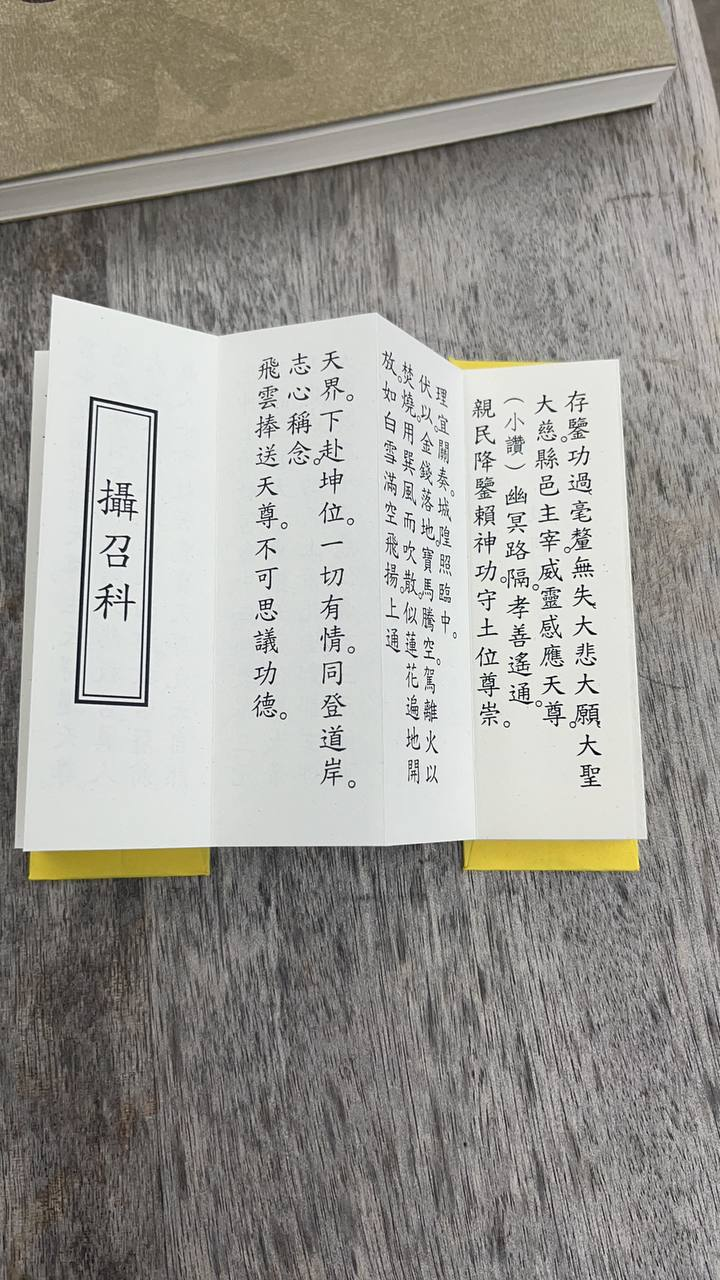 存鑒。功過毫釐。無失、大悲大願。大聖
大慈縣邑主宰。威靈感應天尊。
（小讚）幽冥路隔。孝善遙通。
親民降鑒賴神功。守土位尊崇。
理宜關奏。城隍照臨中。
伏以。金錢落地。寶馬騰空。駕離火以
焚燒。用巽風而吹散。似蓮花遍地開
放。如白雪滿空飛揚。上通
天界。下赴坤位。一切有情。同登道岸。
志心稱念。
飛雲捧送天尊。不可思議功德。
攝召科